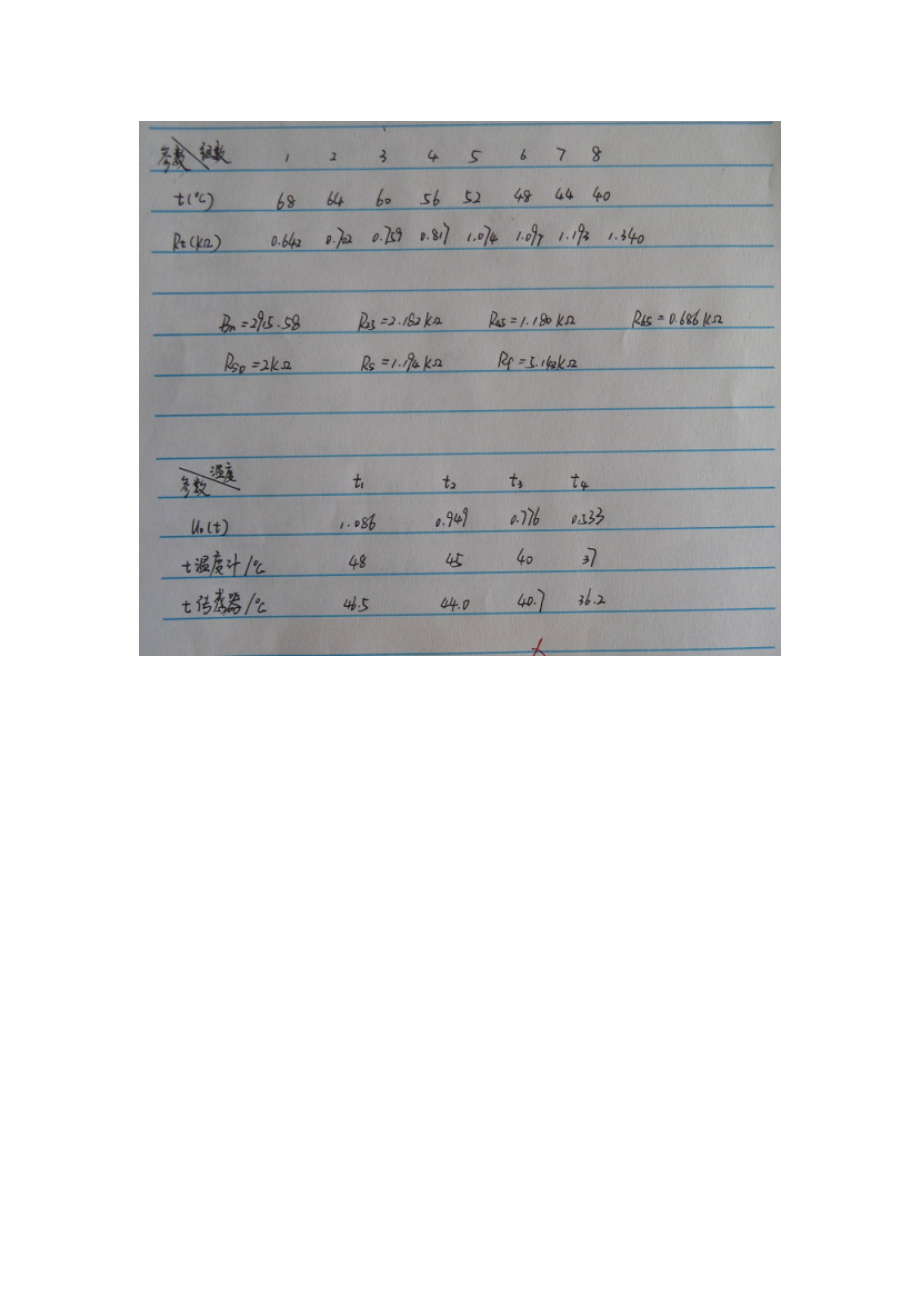 参数 组数 1 2 3 4 5 6 7 8
t(℃) 68 64 60 56 52 48 44 40
Rt(KΩ) 0.642 0.702 0.759 0.817 1.074 1.097 1.193 1.340
Bn=2915.58 R25=2.182KΩ R45=1.180KΩ R65=0.686KΩ
=2KΩ Rs=1.194KΩ Rf=5.142KΩ
参数 温度 t₁ t₂ t₃ t₄
U₀(t) 1.086 0.949 0.776 0.533
t温度计/℃ 48 45 40 37
t传感器/℃ 46.5 44.0 40.7 36.2